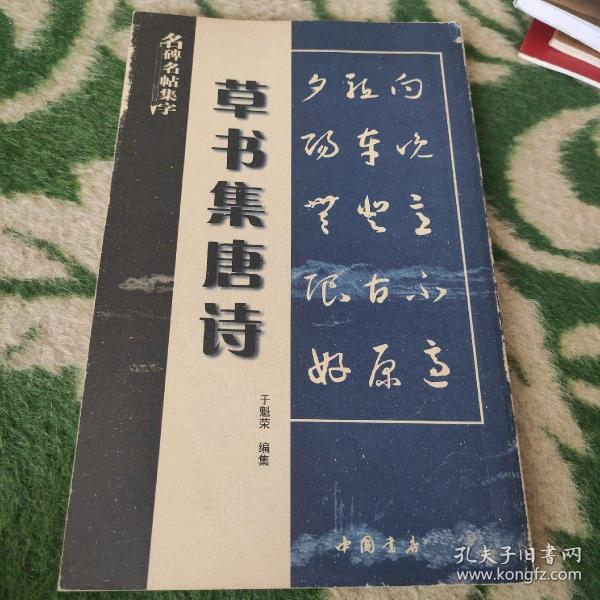 名碑名帖集字
草书集唐诗
于魁荣 编集
向晚意不適
驅車登古原
夕陽無限好
中國書店
孔夫子旧书网
www.kongfz.com